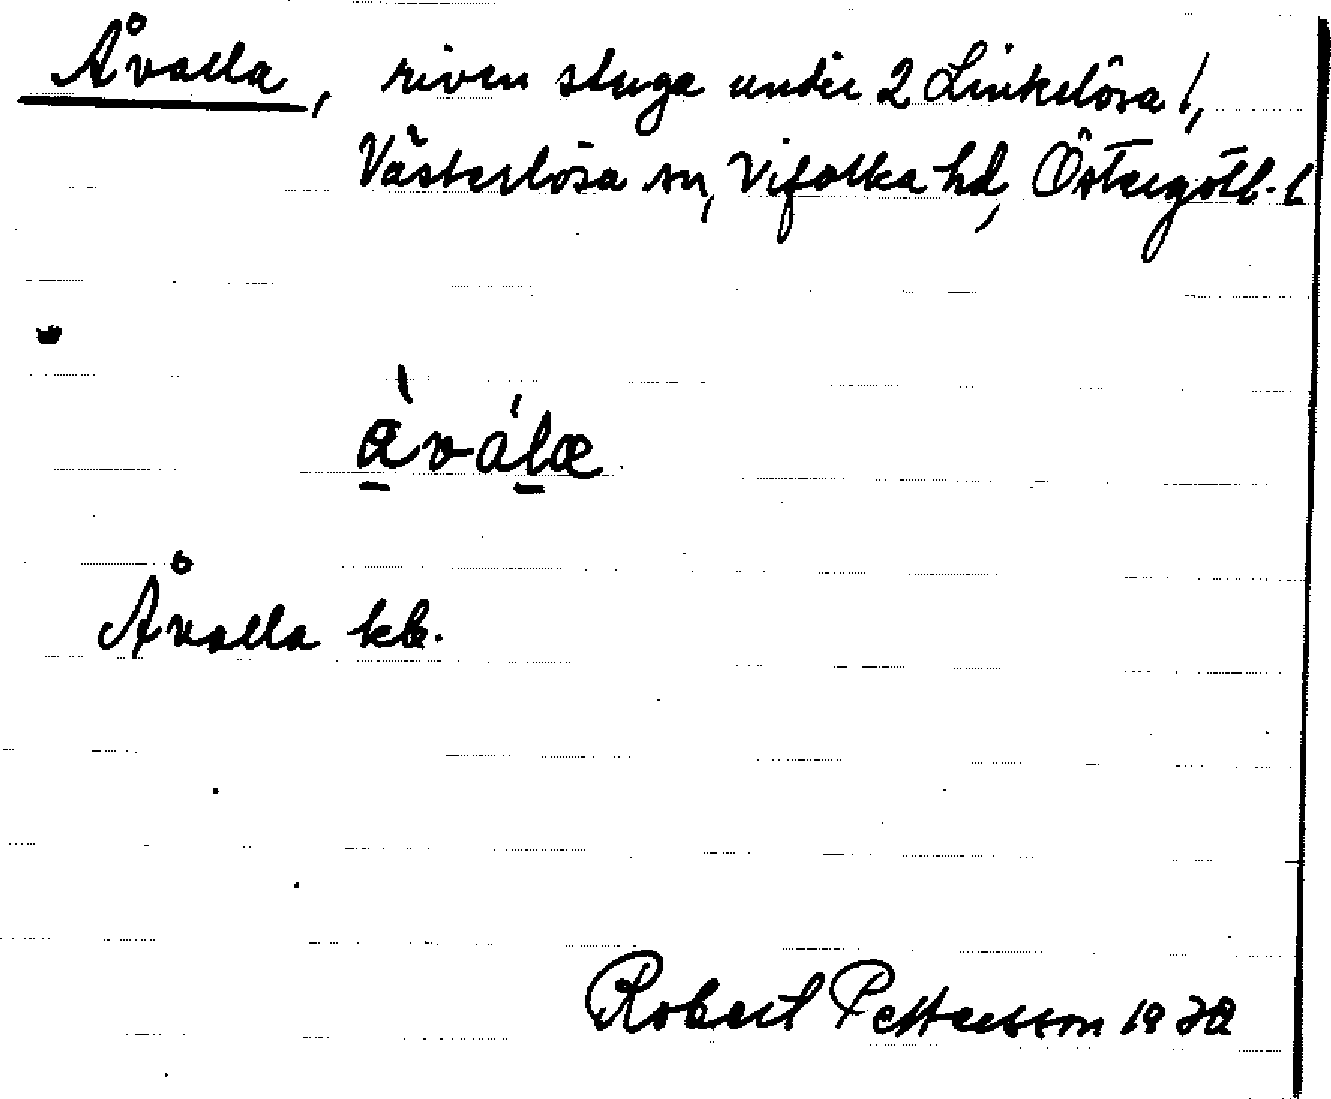 Åvalla, riven stuga under 2 Linkelösa 1,
Västerlösa sn, Vifolka hd, Östergötl. l
àválæ
Åvalla kb.
Robert Pettersson